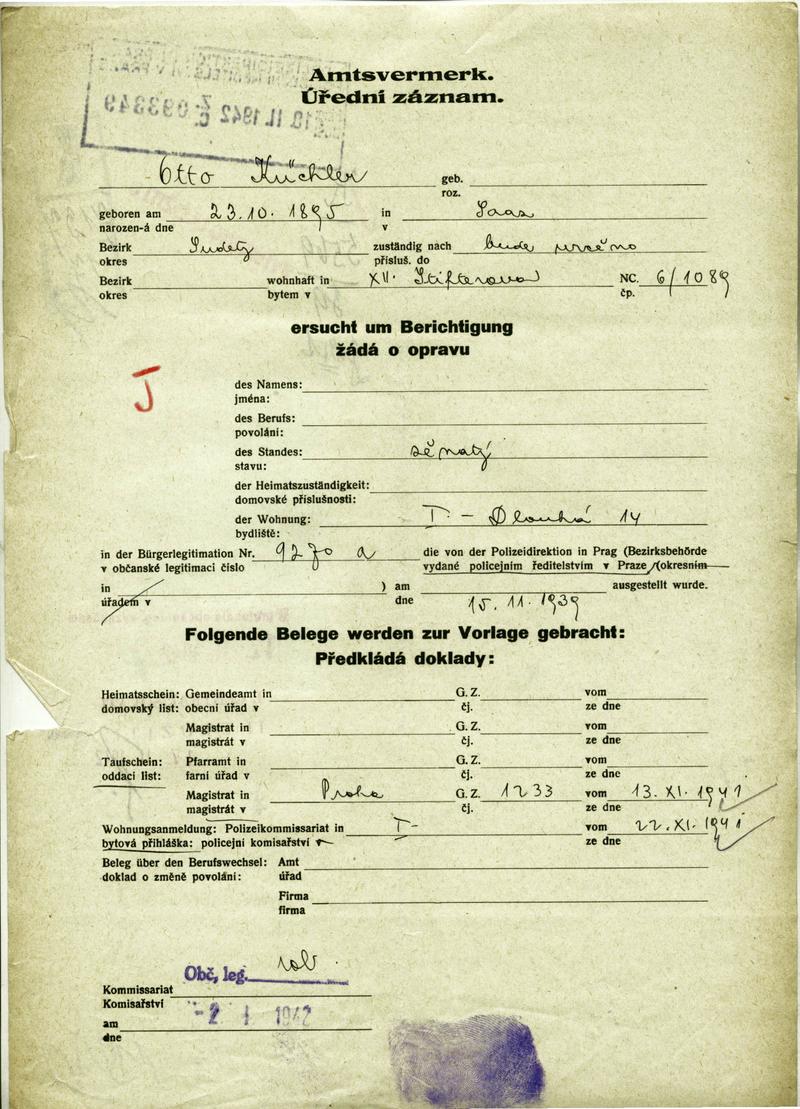 Amtsvermerk.
Úřední záznam.
10. II. 1942 Č. 093349
Otto Küchler geb.
roz.
geboren am 23.10. 1895 in Saaz
narozen-á dne v
Bezirk Sudety zuständig nach bude určeno
okres přísluš. do
Bezirk wohnhaft in XII. Stifterova NC. 6/1089
okres bytem v čp.
ersucht um Berichtigung
žádá o opravu
J
des Namens:
jména:
des Berufs:
povolání:
des Standes: ženatý
stavu:
der Heimatszuständigkeit:
domovské příslušnosti:
der Wohnung: I - Dlouhá 14
bydliště:
in der Bürgerlegitimation Nr. 9270 a die von der Polizeidirektion in Prag (Bezirksbehörde
v občanské legitimaci číslo vydané policejním ředitelstvím v Praze (okresním
in ) am ausgestellt wurde.
úřadem v dne 15. 11. 1939
Folgende Belege werden zur Vorlage gebracht:
Předkládá doklady:
Heimatsschein: Gemeindeamt in G. Z. vom
domovský list: obecní úřad v čj. ze dne
Magistrat in G. Z. vom
magistrát v čj. ze dne
Taufschein: Pfarramt in G. Z. vom
oddací list: farní úřad v čj. ze dne
Magistrat in Praha G. Z. 1233 vom 13. XI. 1941
magistrát v čj. ze dne
Wohnungsanmeldung: Polizeikommissariat in I- vom 22. XI. 1941
bytová přihláška: policejní komisařství v ze dne
Beleg über den Berufswechsel: Amt
doklad o změně povolání: úřad
Firma
firma
Obč. leg.
Kommissariat
Komisařství
am -2 I 1942
dne